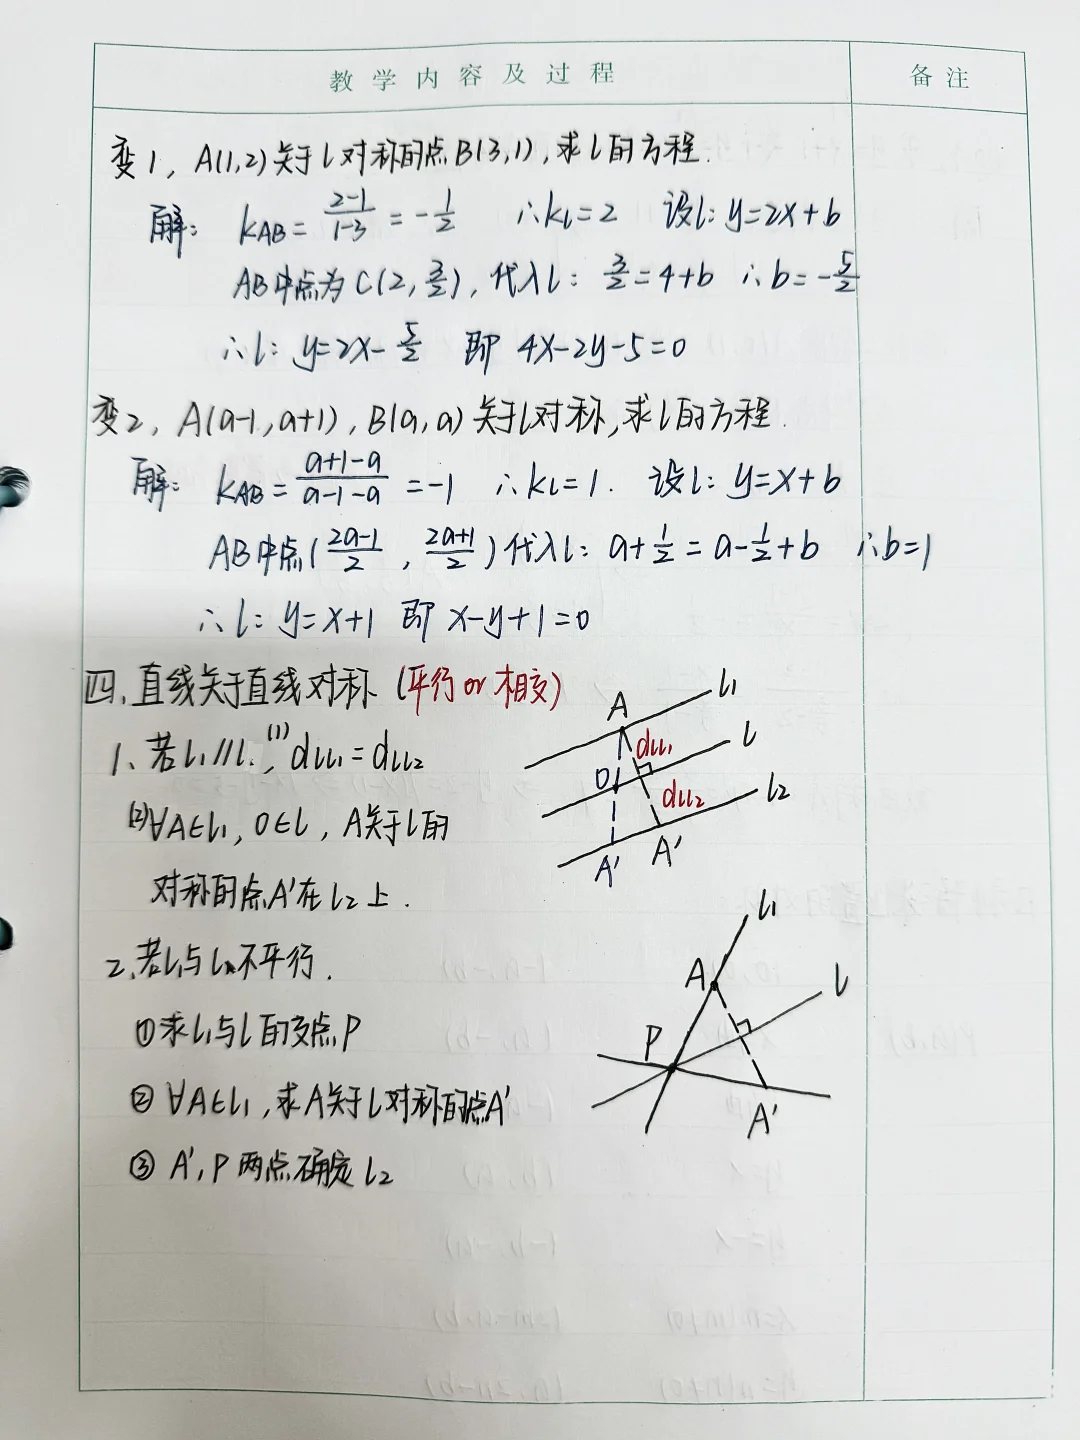 教学内容及过程 备注
变1, A(1,2)关于l对称的点B(3,1),求l的方程.
解: kAB=(2-1)/(1-3)=-1/2 ∴kl=2 设l: y=2x+b
AB中点为C(2,3/2),代入l: 3/2=4+b ∴b=-5/2
∴l: y=2x-5/2 即 4x-2y-5=0
变2, A(a-1,a+1), B(a,a)关于l对称,求l的方程.
解: kAB=(a+1-a)/(a-1-a)=-1 ∴kl=1. 设l: y=x+b
AB中点((2a-1)/2, (2a+1)/2)代入l: a+1/2=a-1/2+b ∴b=1
∴l: y=x+1 即 x-y+1=0
四、直线关于直线对称 (平行or相交)
1、若l1//l, (1) dll1=dll2
(2)∀A∈l1, O∈l, A关于l的
对称的点A'在l2上.
A l1
dll1 l
O
dll2 l2
A' A'
2、若l1与l不平行.
①求l1与l的交点P
②∀A∈l1,求A关于l对称的点A'
③A',P两点确定l2
l1
A l
P
A'